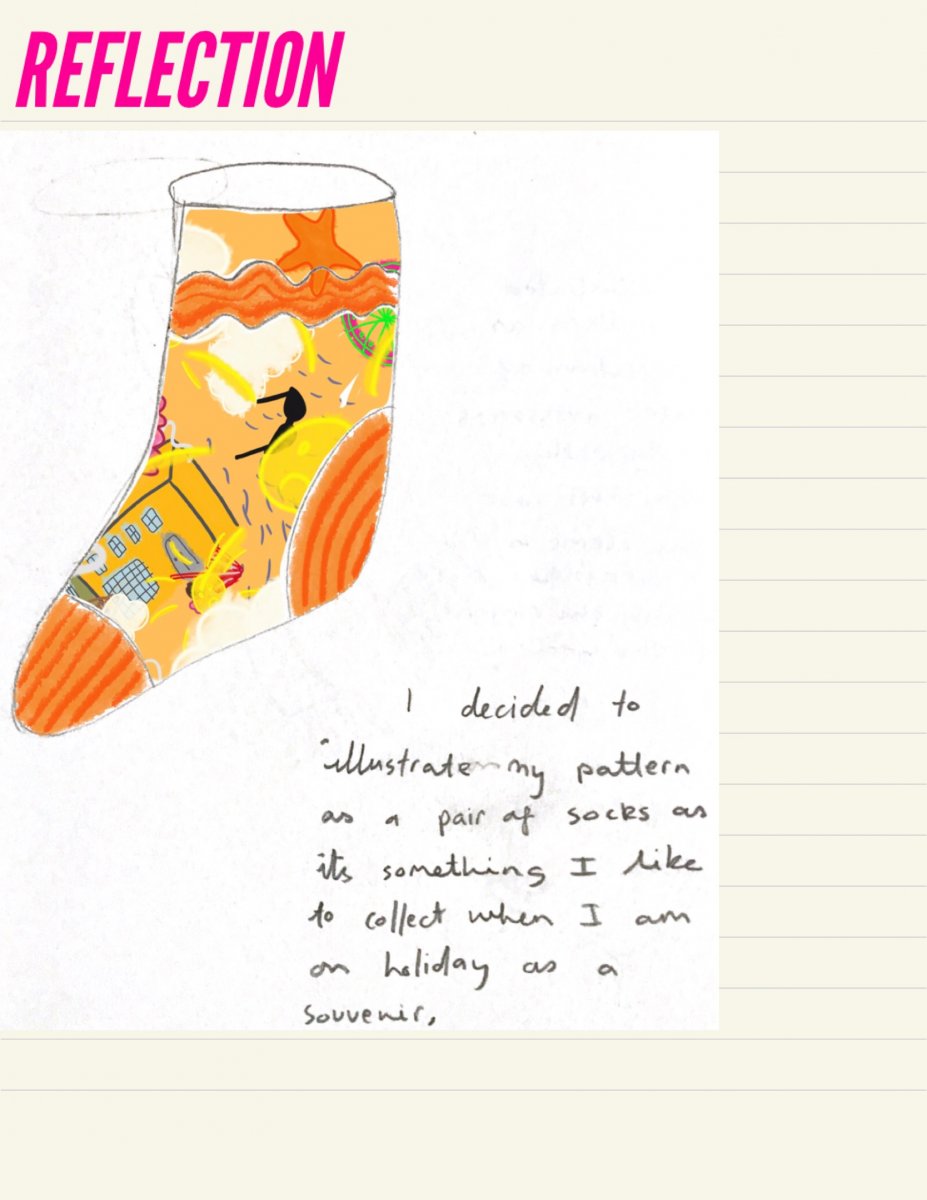 REFLECTION
I decided to
illustrate my pattern
as a pair of socks as
its something I like
to collect when I am
on holiday as a
souvenir,